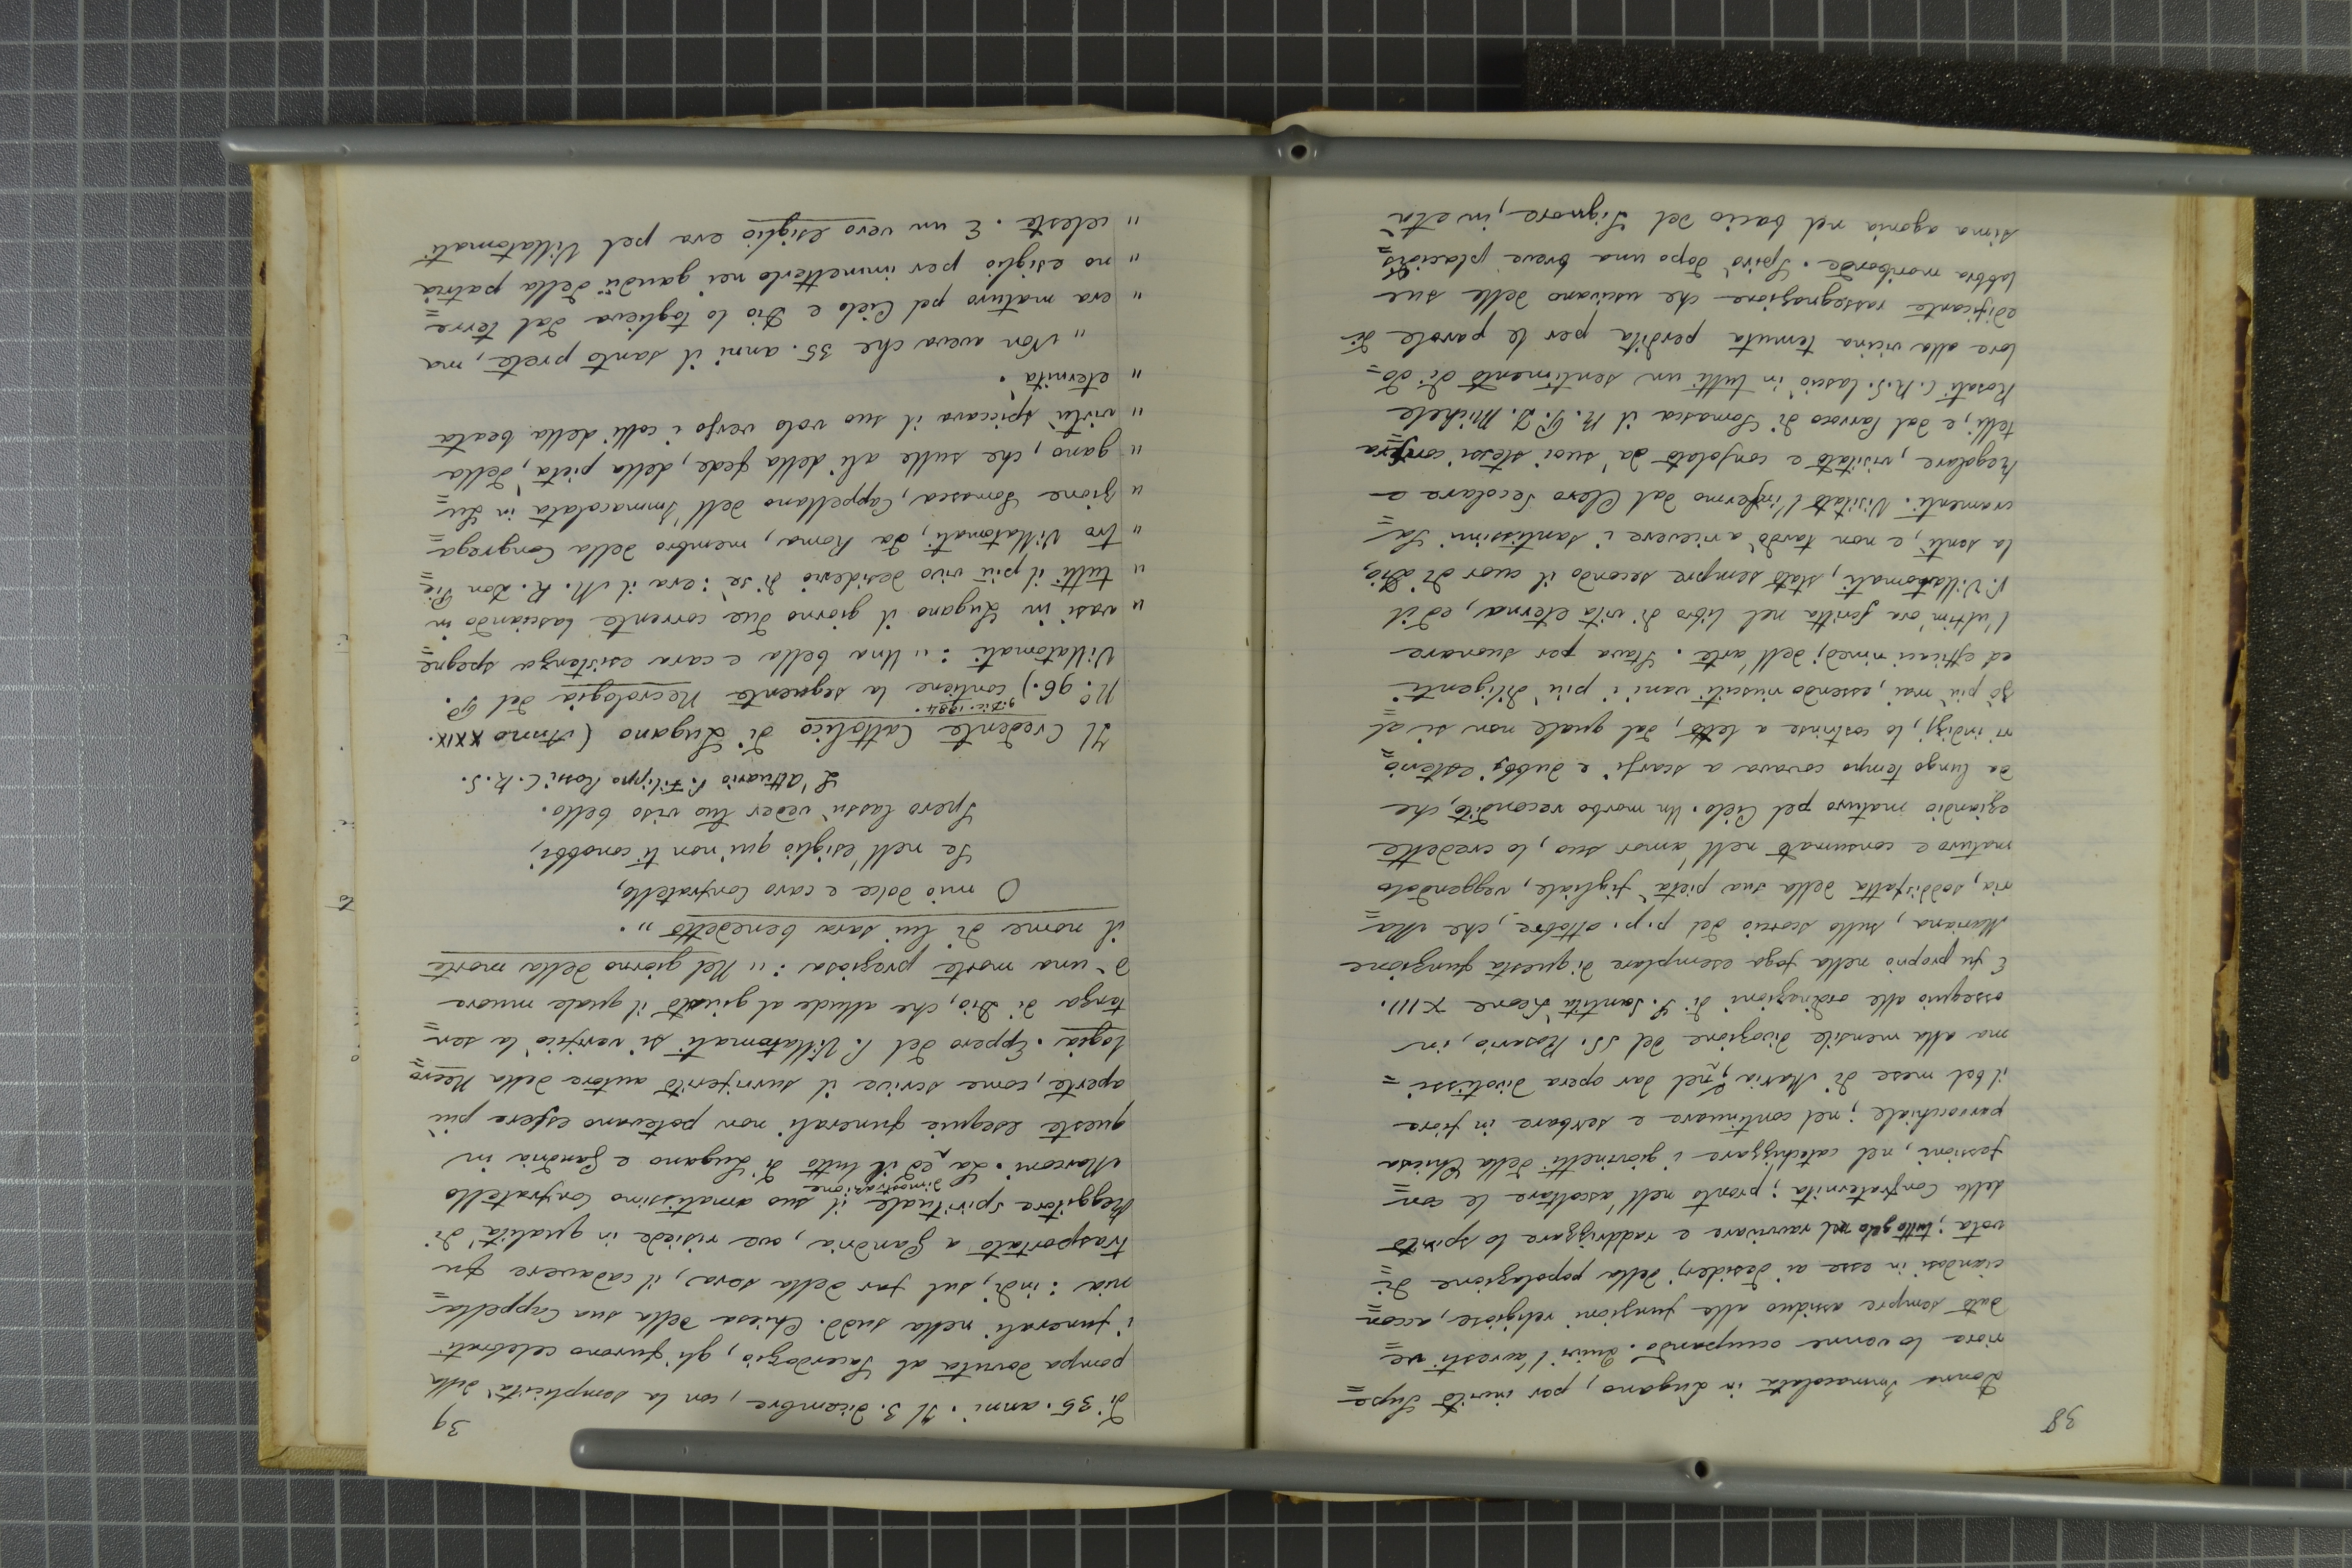 38
Donna Immacolata in Lugano, per invito Supe=
riora lo venne occupando. Quivi l'avresti ve=
duto sempre assiduo alle funzioni religiose, accon=
ciandosi in esse ai desiderj della popolazione di=
vota; tutto zelo nel ravvivare e raddrizzare lo spirito
della Confraternita; pronto nell'ascoltare le con=
fessioni, nel catechizzare i giovinetti della Chiesa
parrocchiale; nel continuare e serbare in fiore
il bel mese di Maria, e nel dar opera divotissi=
ma alla mensile divozione del SS. Rosario, in
ossequio alle ordinazioni di S. Santità Leone XIII.
E fu proprio nella foga esemplare di questa funzione
Mariana, sullo scorcio del p. p. ottobre, che Ma=
ria, soddisfatta della sua pietà figliale, veggendolo
maturo e consumato nell'amor suo, lo credette
eziandio maturo pel Cielo. Un morbo recondito, che
da lungo tempo covava a scarsi e dubbj esterio=
ri indizj, lo costrinse a letto, dal quale non si al=
zò più mai, essendo riusciti vani i più diligenti
ed efficaci rimedj dell'arte. Stava per suonare
l'ultim'ora scritta nel libro di vita eterna, ed il
P. Villatomati, stato sempre secondo il cuor di Dio,
la sentì, e non tardò a ricevere i santissimi Sa=
cramenti. Visitato l'infermo dal Clero Secolare e
Regolare, visitato e consolato da' suoi stessi confra=
telli, e dal Parroco di Somasca il R. P. D. Michele
Rosati C.R.S. lasciò in tutti un sentimento di do=
lore alla vicina temuta perdita per le parole di
edificante rassegnazione che uscivano dalle sue
labbra moribonde. Spirò dopo una breve placidis=
sima agonia nel bacio del Signore, in età
39
di 35. anni. Il 3. dicembre, con la semplicità della
pompa dovuta al Sacerdozio, gli furono celebrati
i funerali nella sudd. Chiesa della sua Cappella=
nia: indi, sul far della sera, il cadavere fu
trasportato a Gandria, ove risiede in qualità di
Reggitore spirituale il suo amatissimo Confratello
Marconi. La dimostrazione ed il lutto di Lugano e Gandria in
queste esequie funerali non potevano essere più
aperte, come scrive il surriferito autore della Necro=
logia. Eppero del P. Villatomati si verificò la sen=
tenza di Dio, che allude al giusto il quale muore
d'una morte preziosa: "Nel giorno della morte
il nome di lui sara benedetto".
O mio dolce e caro Confratello,
Se nell'esiglio qui non ti conobbi,
Spero lassù veder tuo viso bello.
L'Attuario P. Filippo Rossi C.R.S.
Il Credente Cattolico di Lugano (Anno XXIX.
N.o 96.) 9. Dic. 1884. contiene la seguente Necrologia del P.
Villatomati: "Una bella e cara esistenza spegne=
" vasi in Lugano il giorno due corrente lasciando in
" tutti il più vivo desiderio di sè: era il M. R. Don Pie=
" tro Villatomati, da Roma, membro della Congrega=
" zione Somasca, Cappellano dell'Immacolata in Lu=
" gano, che sulle ali della fede, della pietà, della
" virtù spiccava il suo volo verso i colli della beata
" eternità.
" Non aveva che 35. anni il santo prete, ma
" era maturo pel Cielo e Dio lo toglieva dal terre=
" no esiglio per immetterlo nei gaudii della patria
" celeste. E un vero esiglio era pel Villatomati